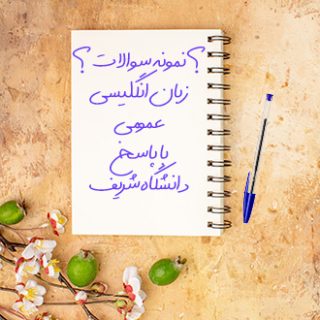 ؟ نمونه سوالات ؟
زبان انگلیسی
عمومی
با پاسخ
دانشگاه شریف